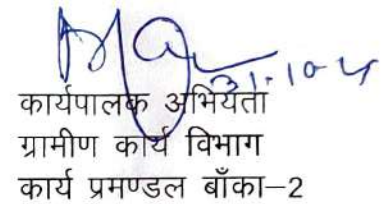 31.10.
कार्यपालक अभियंता
ग्रामीण कार्य विभाग
कार्य प्रमण्डल बाँका–2